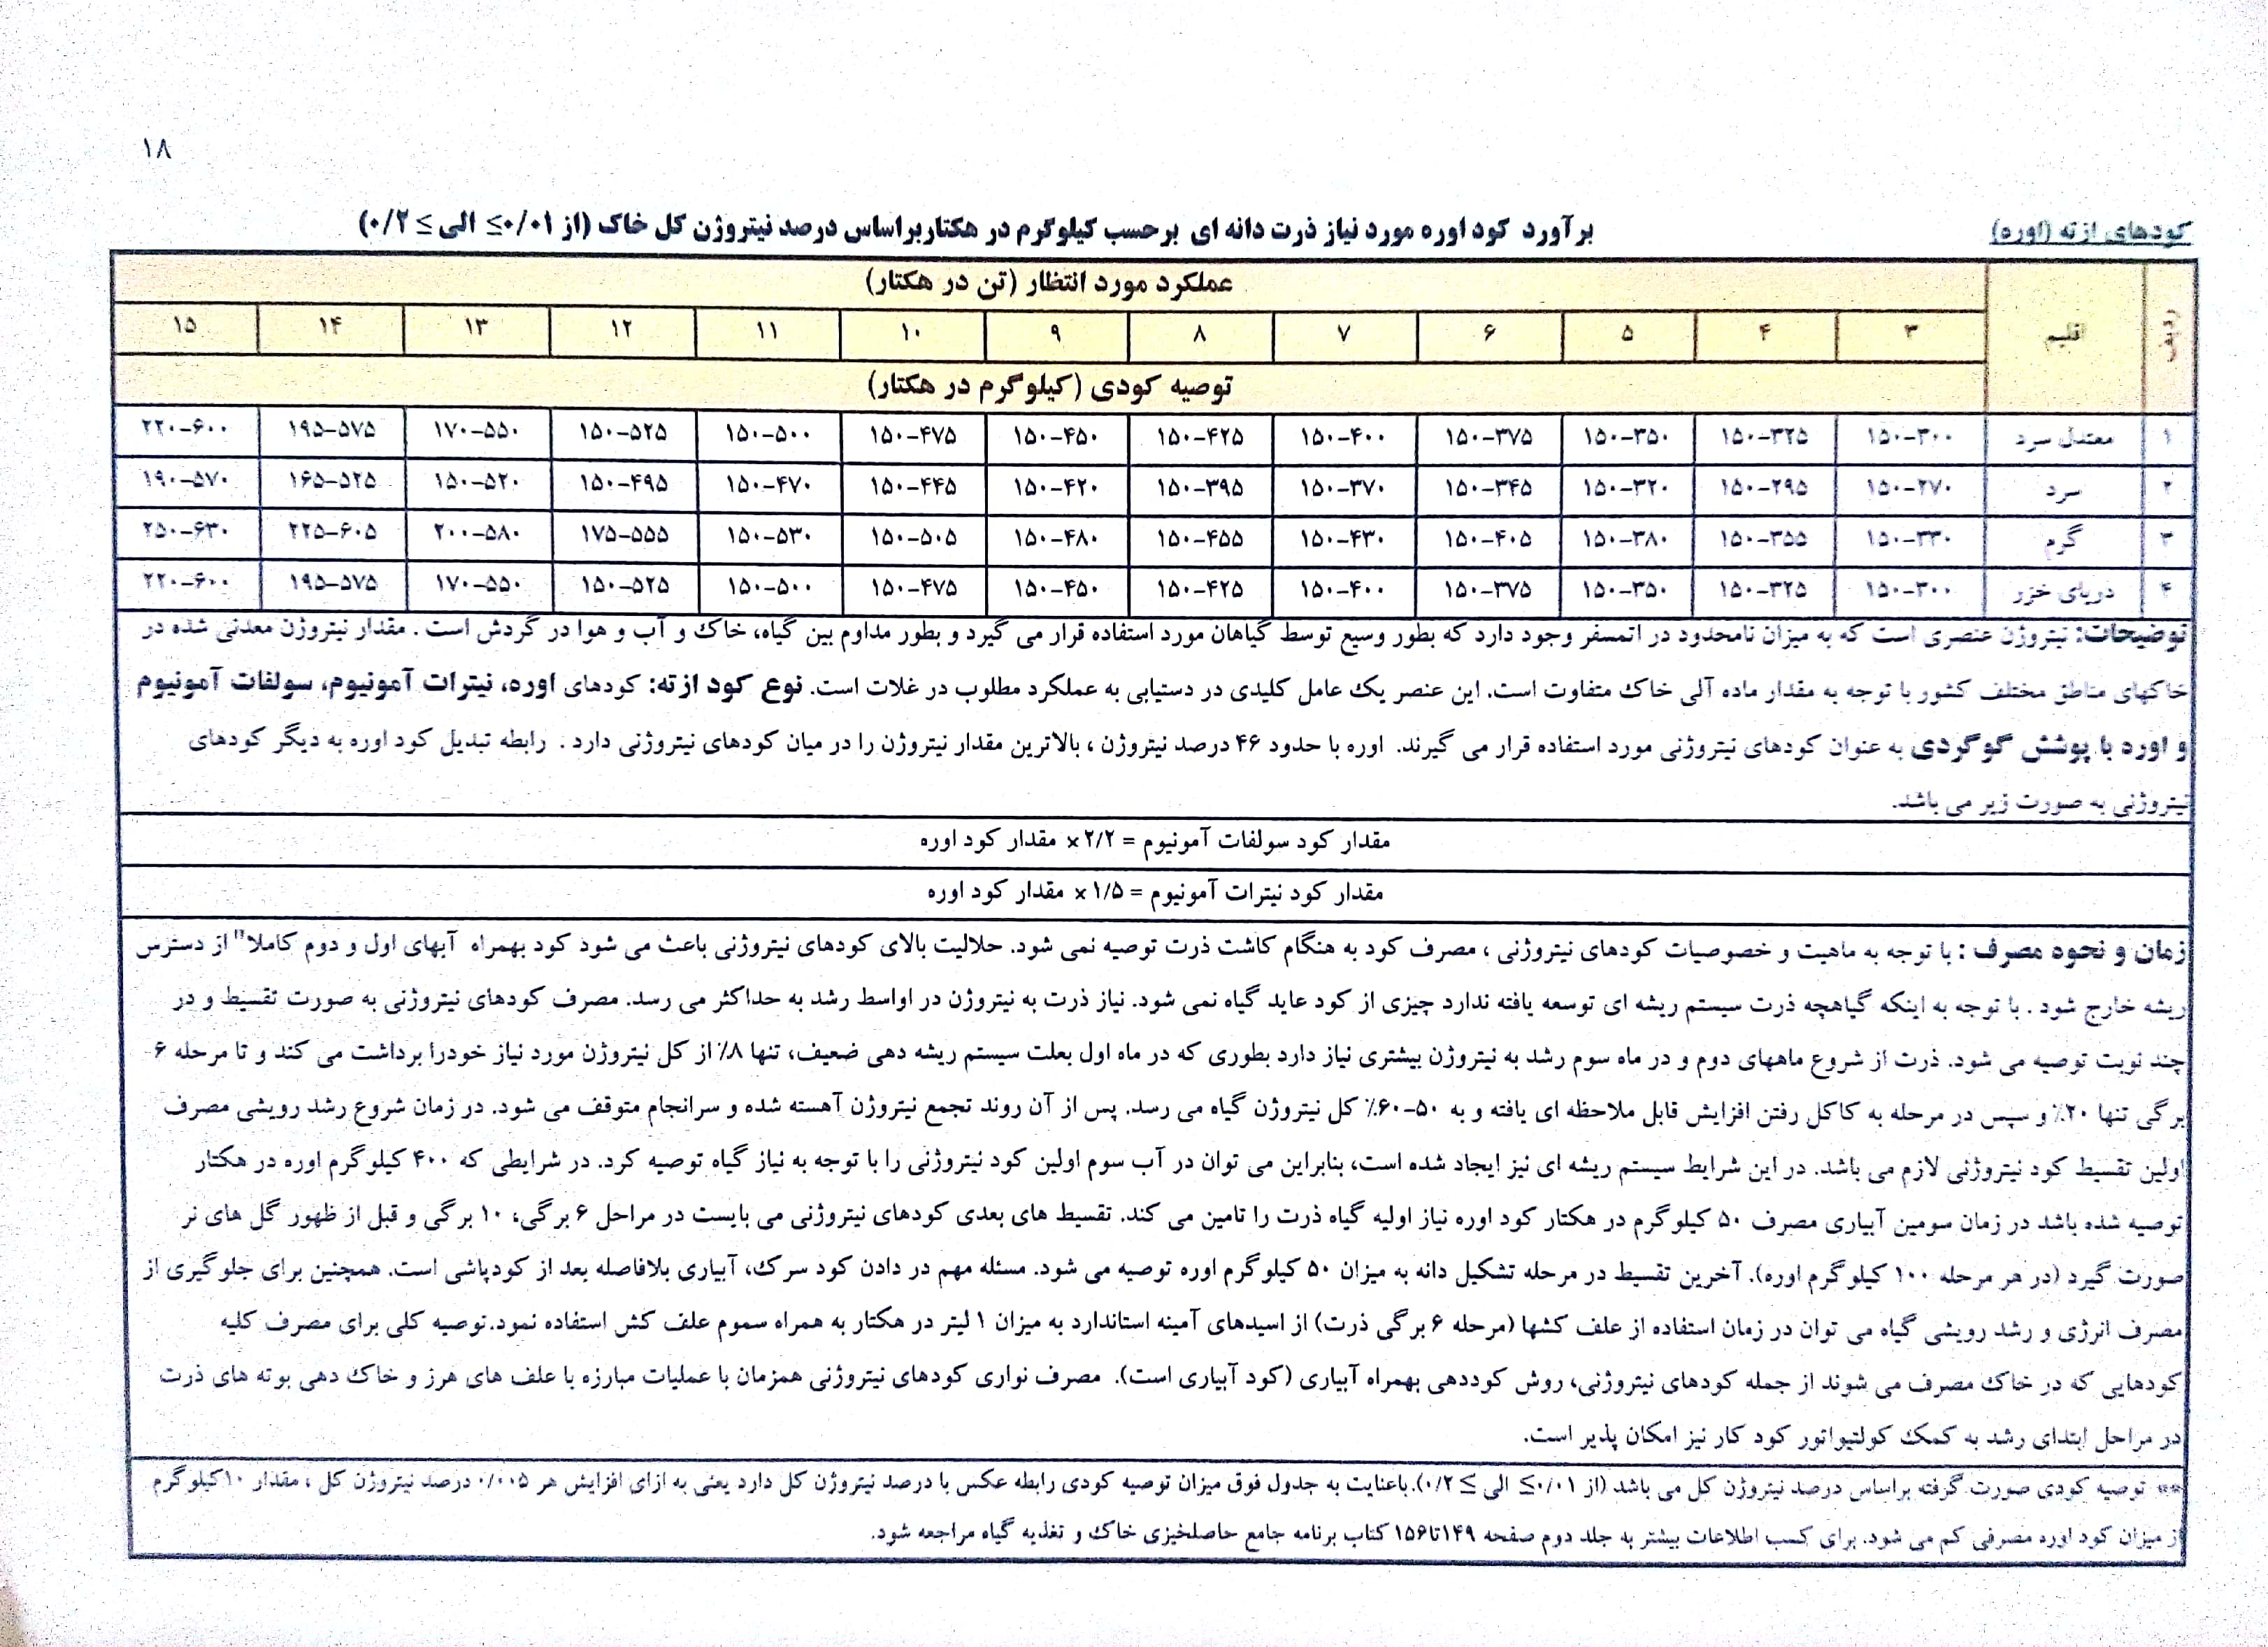 ۱۸
کودهای ازته (اوره)
برآورد کود اوره مورد نیاز ذرت دانه ای برحسب کیلوگرم در هکتاربراساس درصد نیتروژن کل خاک (از ۰/۰۱≥ الی ≥ ۰/۲)
ردیف اقلیم عملکرد مورد انتظار (تن در هکتار)
۳ ۴ ۵ ۶ ۷ ۸ ۹ ۱۰ ۱۱ ۱۲ ۱۳ ۱۴ ۱۵
توصیه کودی (کیلوگرم در هکتار)
۱ معتدل سرد ۱۵۰-۳۰۰ ۱۵۰-۳۲۵ ۱۵۰-۳۵۰ ۱۵۰-۳۷۵ ۱۵۰-۴۰۰ ۱۵۰-۴۲۵ ۱۵۰-۴۵۰ ۱۵۰-۴۷۵ ۱۵۰-۵۰۰ ۱۵۰-۵۲۵ ۱۷۰-۵۵۰ ۱۹۵-۵۷۵ ۲۲۰-۶۰۰
۲ سرد ۱۵۰-۲۷۰ ۱۵۰-۲۹۵ ۱۵۰-۳۲۰ ۱۵۰-۳۴۵ ۱۵۰-۳۷۰ ۱۵۰-۳۹۵ ۱۵۰-۴۲۰ ۱۵۰-۴۴۵ ۱۵۰-۴۷۰ ۱۵۰-۴۹۵ ۱۵۰-۵۲۰ ۱۶۵-۵۲۵ ۱۹۰-۵۷۰
۳ گرم ۱۵۰-۳۳۰ ۱۵۰-۳۵۵ ۱۵۰-۳۸۰ ۱۵۰-۴۰۵ ۱۵۰-۴۳۰ ۱۵۰-۴۵۵ ۱۵۰-۴۸۰ ۱۵۰-۵۰۵ ۱۵۰-۵۳۰ ۱۷۵-۵۵۵ ۲۰۰-۵۸۰ ۲۲۵-۶۰۵ ۲۵۰-۶۳۰
۴ دریای خزر ۱۵۰-۳۰۰ ۱۵۰-۳۲۵ ۱۵۰-۳۵۰ ۱۵۰-۳۷۵ ۱۵۰-۴۰۰ ۱۵۰-۴۲۵ ۱۵۰-۴۵۰ ۱۵۰-۴۷۵ ۱۵۰-۵۰۰ ۱۵۰-۵۲۵ ۱۷۰-۵۵۰ ۱۹۵-۵۷۵ ۲۲۰-۶۰۰
توضیحات: نیتروژن عنصری است که به میزان نامحدود در اتمسفر وجود دارد که بطور وسیع توسط گیاهان مورد استفاده قرار می گیرد و بطور مداوم بین گیاه، خاک و آب و هوا در گردش است . مقدار نیتروژن معدنی شده در
خاکهای مناطق مختلف کشور با توجه به مقدار ماده آلی خاک متفاوت است. این عنصر یک عامل کلیدی در دستیابی به عملکرد مطلوب در غلات است. نوع کود ازته: کودهای اوره، نیترات آمونیوم، سولفات آمونیوم
و اوره با پوشش گوگردی به عنوان کودهای نیتروژنی مورد استفاده قرار می گیرند. اوره با حدود ۴۶ درصد نیتروژن ، بالاترین مقدار نیتروژن را در میان کودهای نیتروژنی دارد . رابطه تبدیل کود اوره به دیگر کودهای
نیتروژنی به صورت زیر می باشد.
مقدار کود سولفات آمونیوم = ۲/۲ × مقدار کود اوره
مقدار کود نیترات آمونیوم = ۱/۵ × مقدار کود اوره
زمان و نحوه مصرف : با توجه به ماهیت و خصوصیات کودهای نیتروژنی ، مصرف کود به هنگام کاشت ذرت توصیه نمی شود. حلالیت بالای کودهای نیتروژنی باعث می شود کود بهمراه آبهای اول و دوم کاملا" از دسترس
ریشه خارج شود . با توجه به اینکه گیاهچه ذرت سیستم ریشه ای توسعه یافته ندارد چیزی از کود عاید گیاه نمی شود. نیاز ذرت به نیتروژن در اواسط رشد به حداکثر می رسد. مصرف کودهای نیتروژنی به صورت تقسیط و در
چند نوبت توصیه می شود. ذرت از شروع ماههای دوم و در ماه سوم رشد به نیتروژن بیشتری نیاز دارد بطوری که در ماه اول بعلت سیستم ریشه دهی ضعیف، تنها ۸٪ از کل نیتروژن مورد نیاز خودرا برداشت می کند و تا مرحله ۶
برگی تنها ۲۰٪ و سپس در مرحله به کاکل رفتن افزایش قابل ملاحظه ای یافته و به ۵۰-۶۰٪ کل نیتروژن گیاه می رسد. پس از آن روند تجمع نیتروژن آهسته شده و سرانجام متوقف می شود. در زمان شروع رشد رویشی مصرف
اولین تقسیط کود نیتروژنی لازم می باشد. در این شرایط سیستم ریشه ای نیز ایجاد شده است، بنابراین می توان در آب سوم اولین کود نیتروژنی را با توجه به نیاز گیاه توصیه کرد. در شرایطی که ۴۰۰ کیلوگرم اوره در هکتار
توصیه شده باشد در زمان سومین آبیاری مصرف ۵۰ کیلوگرم در هکتار کود اوره نیاز اولیه گیاه ذرت را تامین می کند. تقسیط های بعدی کودهای نیتروژنی می بایست در مراحل ۶ برگی، ۱۰ برگی و قبل از ظهور گل های نر
صورت گیرد (در هر مرحله ۱۰۰ کیلوگرم اوره). آخرین تقسیط در مرحله تشکیل دانه به میزان ۵۰ کیلوگرم اوره توصیه می شود. مسئله مهم در دادن کود سرک، آبیاری بلافاصله بعد از کودپاشی است. همچنین برای جلوگیری از
مصرف انرژی و رشد رویشی گیاه می توان در زمان استفاده از علف کشها (مرحله ۶ برگی ذرت) از اسیدهای آمینه استاندارد به میزان ۱ لیتر در هکتار به همراه سموم علف کش استفاده نمود.توصیه کلی برای مصرف کلیه
کودهایی که در خاک مصرف می شوند از جمله کودهای نیتروژنی، روش کوددهی بهمراه آبیاری (کود آبیاری است). مصرف نواری کودهای نیتروژنی همزمان با عملیات مبارزه با علف های هرز و خاک دهی بوته های ذرت
در مراحل ابتدای رشد به کمک کولتیواتور کود کار نیز امکان پذیر است.
** توصیه کودی صورت گرفته براساس درصد نیتروژن کل می باشد (از ۰/۰۱≥ الی ≥ ۰/۲).باعنایت به جدول فوق میزان توصیه کودی رابطه عکس با درصد نیتروژن کل دارد یعنی به ازای افزایش هر ۰/۰۰۵ درصد نیتروژن کل ، مقدار ۱۰کیلوگرم
از میزان کود اوره مصرفی کم می شود. برای کسب اطلاعات بیشتر به جلد دوم صفحه ۱۴۹تا۱۵۶ کتاب برنامه جامع حاصلخیزی خاک و تغذیه گیاه مراجعه شود.